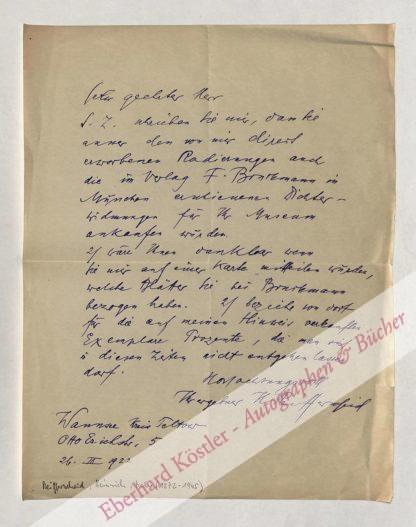 Sehr geehrter Herr
S. Z. schrieben Sie mir, dass Sie
ausser den von mir direct
erworbenen Radierungen auch
die im Verlag F. Bruckmann in
München erschienenen Dichter-
widmungen für Ihr Museum
ankaufen würden.
Ich wäre Ihnen dankbar wenn
Sie mir auf einer Karte mitteilen würden,
welche Blätter Sie bei Bruckmann
bezogen haben. Ich beziehe von dort
für die auf meinen Hinweis verkauften
Exemplare Prozente, die man sich
in diesen Zeiten nicht entgehen lassen
darf.
Hochachtungsvoll
Ihr ergebener
Wannsee Kreis Teltow
Otto Erichstr. 5
26. III
Reifferscheid, Heinrich (1872-1945)
Eberhard Köstler - Autographen & Bücher